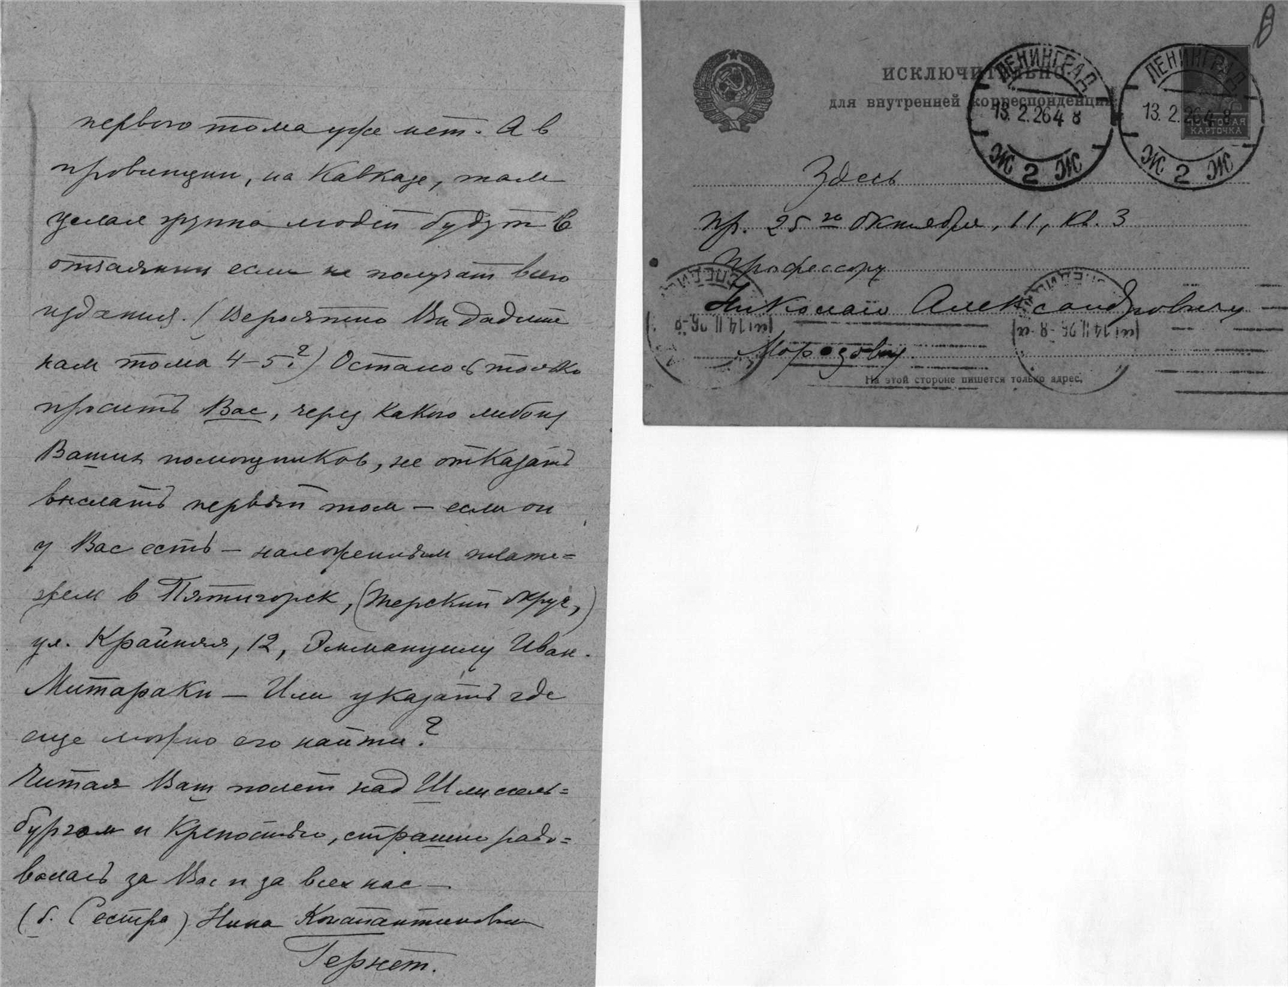 первого тома уже нет. А в
провинции, на Кавказе, там
целая группа людей будут в
отчаянии если не получат всего
издания. (Вероятно Вы дадите
нам тома 4–5?) Осталось только
просить Вас, через какого либо из
Ваших помощников, не отказать
выслать первый том – если он
у Вас есть – наложенным плате=
жем в Пятигорск, (Терский округ,)
ул. Крайняя, 12, Эммануилу Иван.
Митараки – Или указать где
еще можно его найти?
Читая Ваш полет над Шлиссель=
бургом и Крепостью, страшно радо=
валась за Вас и за всех нас –
(б. Сестра) Нина Константиновна
Гернет.
ИСКЛЮЧИТЕЛЬНО
для внутренней корреспонденции
ЛЕНИНГРАД
13.2.26 4 8
2
ЛЕНИНГРАД
13.2.26 4 8
2
ПОЧТОВАЯ
КАРТОЧКА
Здесь
пр. 25го Октября, 11, кв. 3
Профессору
Николаю Александровичу
Морозову
На этой стороне пишется только адрес.